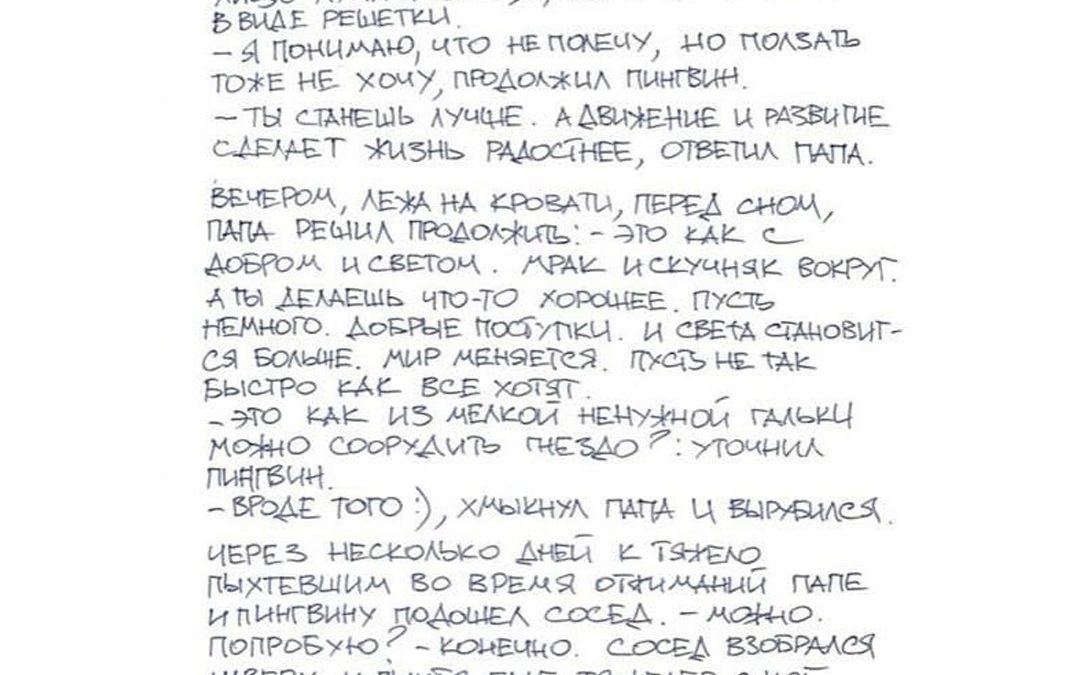 В ВИДЕ РЕШЕТКИ.
– Я ПОНИМАЮ, ЧТО НЕ ПОЛЕЧУ, НО ПОЛЗАТЬ
ТОЖЕ НЕ ХОЧУ, ПРОДОЛЖИЛ ПИНГВИН.
– ТЫ СТАНЕШЬ ЛУЧШЕ. А ДВИЖЕНИЕ И РАЗВИТИЕ
СДЕЛАЕТ ЖИЗНЬ РАДОСТНЕЕ, ОТВЕТИЛ ПАПА.
ВЕЧЕРОМ, ЛЕЖА НА КРОВАТИ, ПЕРЕД СНОМ,
ПАПА РЕШИЛ ПРОДОЛЖИТЬ: – ЭТО КАК С
ДОБРОМ И СВЕТОМ. МРАК И СКУЧНЯК ВОКРУГ.
А ТЫ ДЕЛАЕШЬ ЧТО-ТО ХОРОШЕЕ. ПУСТЬ
НЕМНОГО. ДОБРЫЕ ПОСТУПКИ. И СВЕТА СТАНОВИТ-
СЯ БОЛЬШЕ. МИР МЕНЯЕТСЯ. ПУСТЬ НЕ ТАК
БЫСТРО КАК ВСЕ ХОТЯТ.
– ЭТО КАК ИЗ МЕЛКОЙ НЕНУЖНОЙ ГАЛЬКИ
МОЖНО СООРУДИТЬ ГНЕЗДО?: УТОЧНИЛ
ПИНГВИН.
– ВРОДЕ ТОГО :), ХМЫКНУЛ ПАПА И ВЫРУБИЛСЯ.
ЧЕРЕЗ НЕСКОЛЬКО ДНЕЙ К ТЯЖЕЛО
ПЫХТЕВШИМ ВО ВРЕМЯ ОТЖИМАНИЙ ПАПЕ
И ПИНГВИНУ ПОДОШЕЛ СОСЕД. – МОЖНО.
ПОПРОБУЮ? – КОНЕЧНО. СОСЕД ВЗОБРАЛСЯ